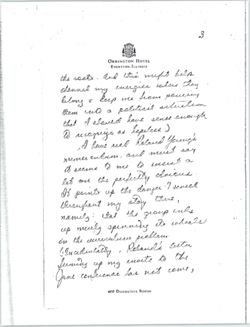 3
ORRINGTON HOTEL
EVANSTON, ILLINOIS
the roots. And this might help
channel my energies where they
belong & keep me from pouring
them into a political situation
that I should have sense enough
to recognize as hopeless)
I have read Roland Young's
memorandum. and must say
it seems to me to
lot on the perfectly
It points up the danger I
throughout my stay thus,
namely: that the group ends
up merely spinning its wheels
on the curriculum problem
(Incidentally, Roland's letter
summing up my
June conference has not come,